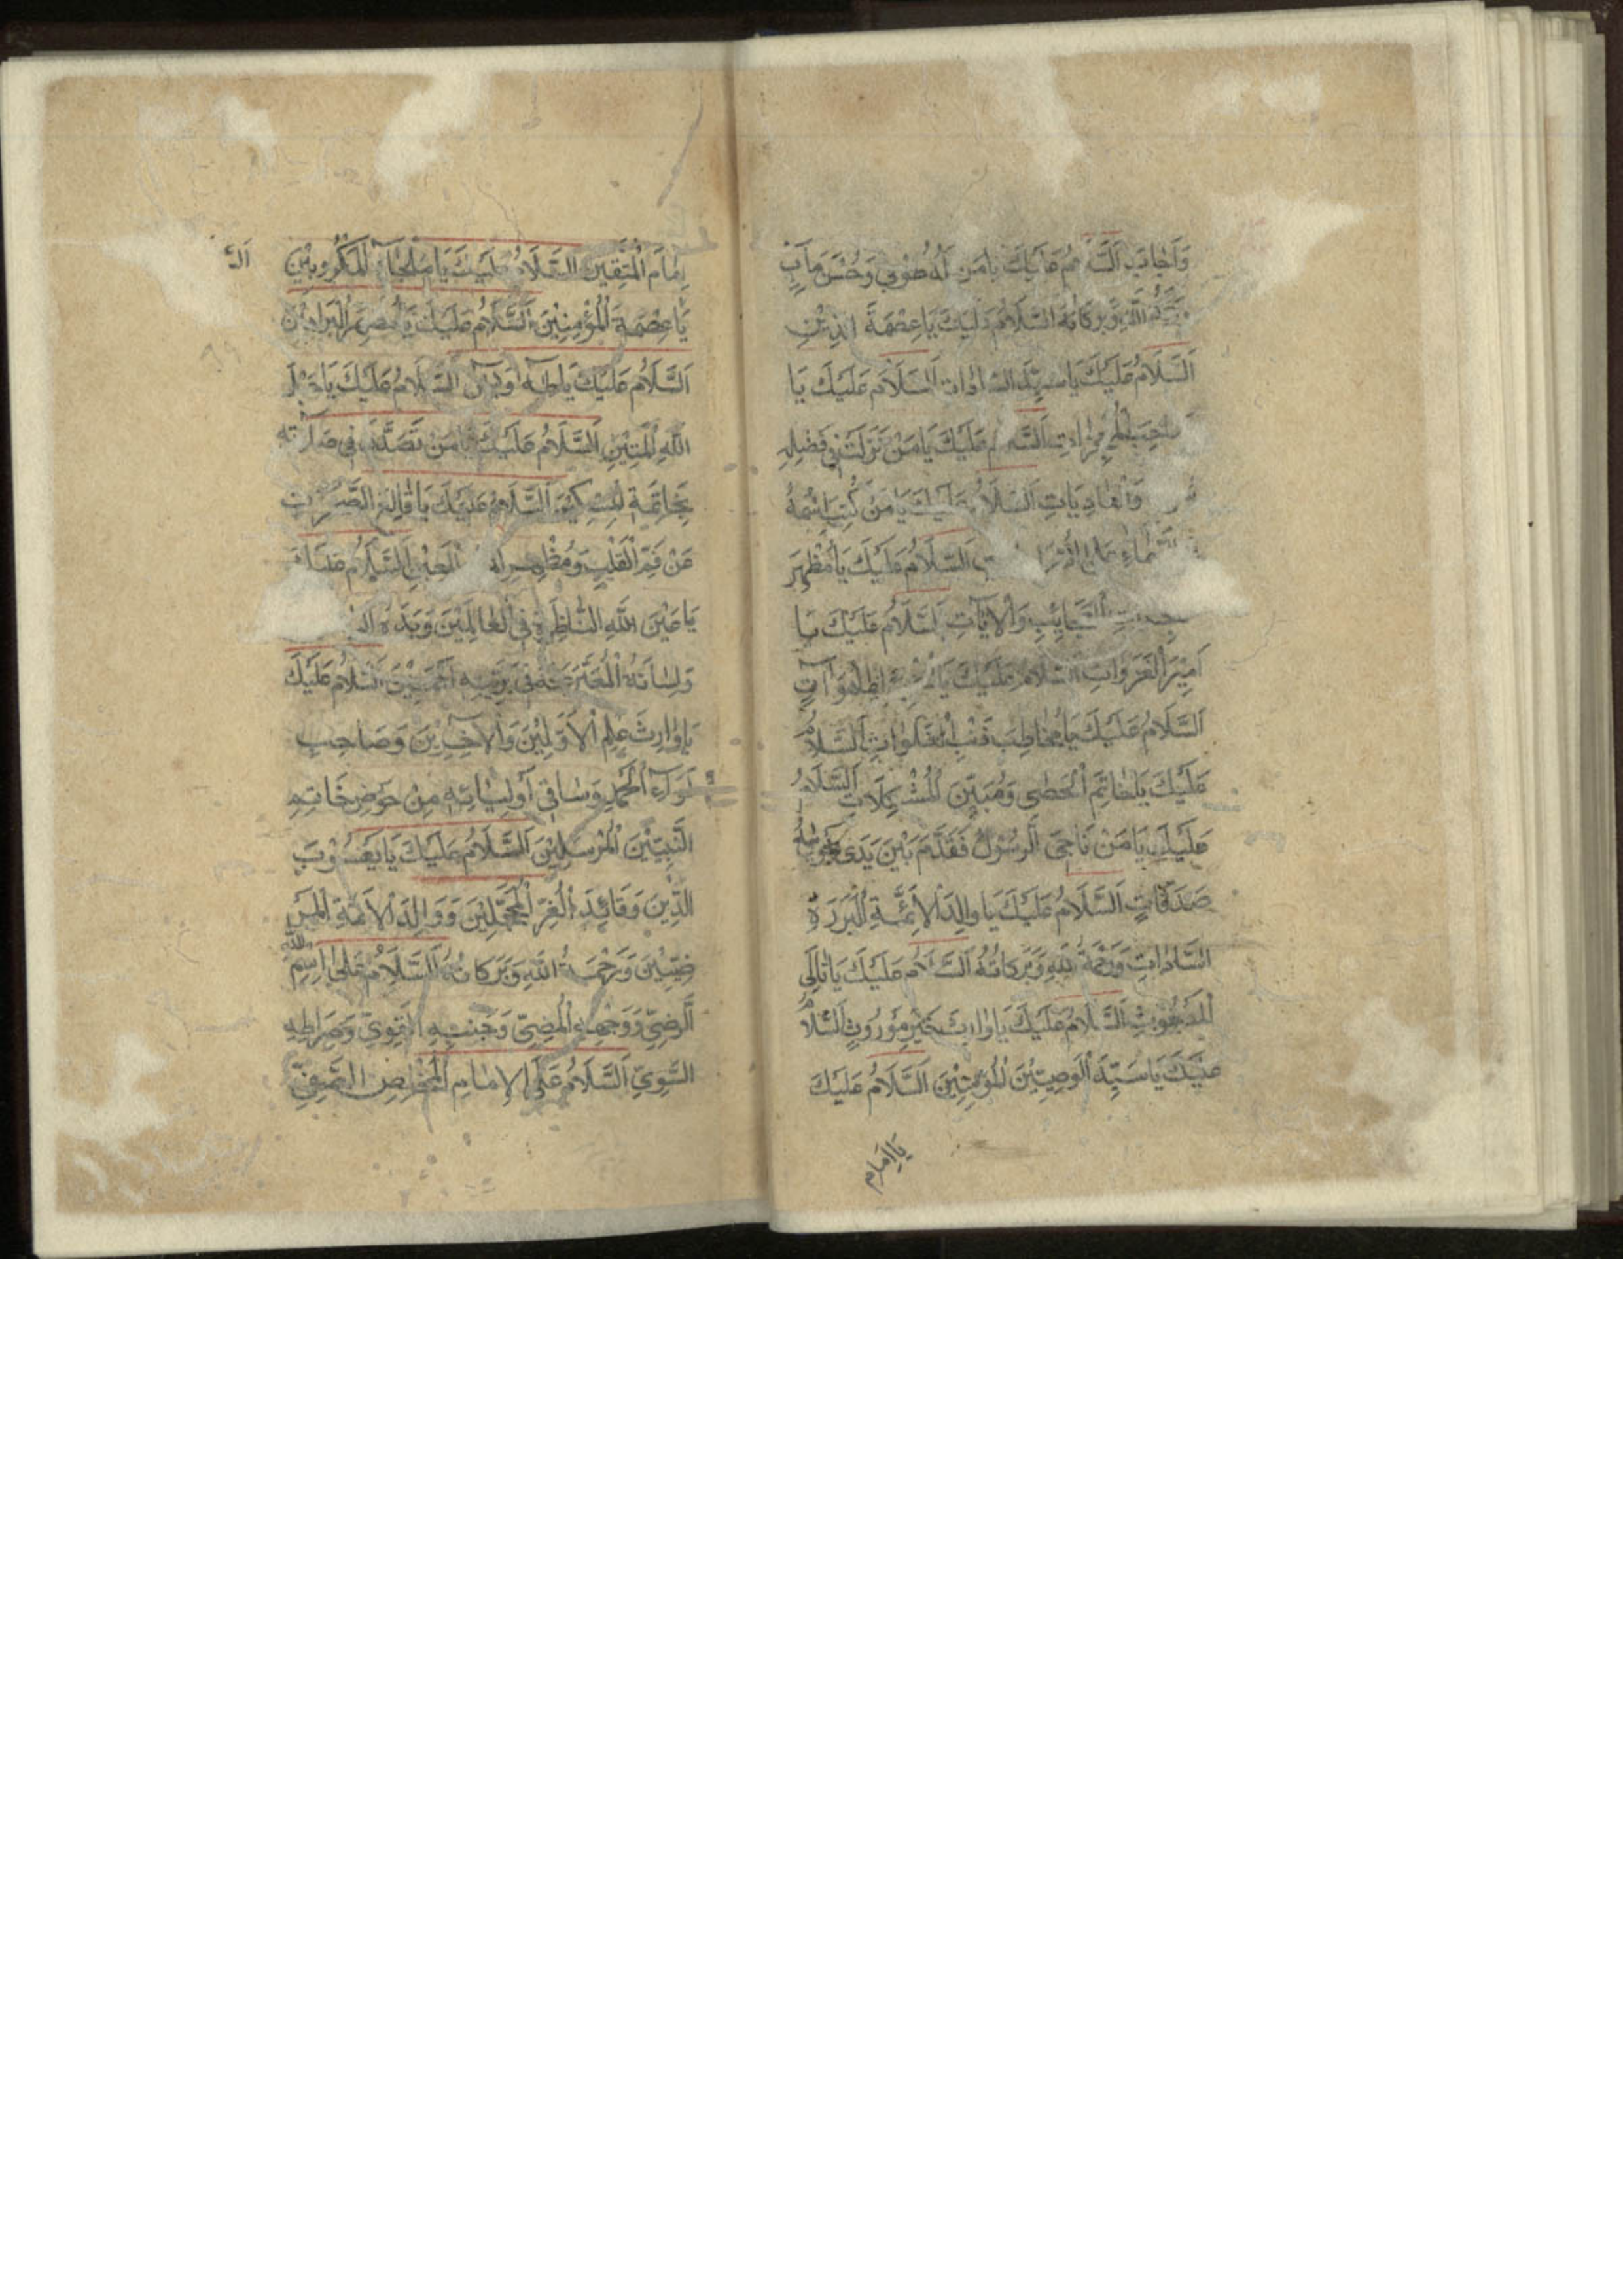 وَأَجَابَ السَّلَامُ عَلَيْكَ يَا مَنْ لَهُ طُوبَى وَحُسْنُ مَآبٍ
وَرَحْمَةُ اللَّهِ وَبَرَكَاتُهُ السَّلَامُ عَلَيْكَ يَا عِصْمَةَ
اَلسَّلَامُ عَلَيْكَ يَا سَيِّدَ السَّادَاتِ اَلسَّلَامُ عَلَيْكَ يَا
صَاحِبَ الْمُعْجِزَاتِ اَلسَّلَامُ عَلَيْكَ يَا مَنْ نَزَلَتْ فِي فَضْلِهِ
وَالْعَادِيَاتِ اَلسَّلَامُ عَلَيْكَ يَا مَنْ كُتِبَ اسْمُهُ
السَّمَاءِ عَلَى اَلسَّلَامُ عَلَيْكَ يَا مُظْهِرَ
الْعَجَائِبِ وَالْآيَاتِ اَلسَّلَامُ عَلَيْكَ يَا
أَمِيرَ الْغَزَوَاتِ اَلسَّلَامُ عَلَيْكَ يَا بِمَا هُوَ آتٍ
اَلسَّلَامُ عَلَيْكَ يَا مُخَاطِبَ ذِئْبِ الْفَلَوَاتِ اَلسَّلَامُ
عَلَيْكَ يَا خَاتِمَ الْحَصَى وَمُبَيِّنَ الْمُشْكِلَاتِ اَلسَّلَامُ
عَلَيْكَ يَا مَنْ نَاجَى الرَّسُولَ فَقَدَّمَ بَيْنَ يَدَيْ نَجْوَاهُ
صَدَقَاتٍ اَلسَّلَامُ عَلَيْكَ يَا وَالِدَ الْأَئِمَّةِ الْبَرَرَةِ
السَّادَاتِ وَرَحْمَةُ اللهِ وَبَرَكَاتُهُ اَلسَّلَامُ عَلَيْكَ يَا تَالِيَ
الْمَبْعُوثِ اَلسَّلَامُ عَلَيْكَ يَا وَارِثَ خَيْرِ مَوْرُوثٍ اَلسَّلَامُ
عَلَيْكَ يَا سَيِّدَ الْوَصِيِّينَ الْمُؤْمِنِينَ اَلسَّلَامُ عَلَيْكَ
يَا إِمَامَ
إِمَامَ الْمُتَّقِينَ اَلسَّلَامُ عَلَيْكَ يَا مَلْجَأَ الْمَكْرُوبِينَ
يَا عِصْمَةَ الْمُؤْمِنِينَ اَلسَّلَامُ عَلَيْكَ يَا مُظْهِرَ الْبَرَاهِينِ
اَلسَّلَامُ عَلَيْكَ يَا طه وَيس اَلسَّلَامُ عَلَيْكَ يَا حَبْلَ
اللهِ الْمَتِينِ اَلسَّلَامُ عَلَيْكَ يَا مَنْ تَصَدَّقَ فِي صَلَاتِهِ
بِخَاتَمِهِ اَلسَّلَامُ عَلَيْكَ يَا قَالِعَ الصَّخْرَةِ
عَنْ فَمِ الْقَلِيبِ وَمُظْهِرَ الْمَعِينِ اَلسَّلَامُ عَلَيْكَ
يَا عَيْنَ اللهِ النَّاظِرَةَ فِي الْعَالَمِينَ وَيَدَهُ
وَلِسَانَهُ الْمُعَبِّرَ عَنْهُ فِي بَرِيَّتِهِ أَجْمَعِينَ اَلسَّلَامُ عَلَيْكَ
يَا وَارِثَ عِلْمِ الْأَوَّلِينَ وَالْآخِرِينَ وَصَاحِبَ
لِوَاءِ الْحَمْدِ وَسَاقِيَ أَوْلِيَائِهِ مِنْ حَوْضِ خَاتَمِ
النَّبِيِّينَ الْمُرْسَلِينَ اَلسَّلَامُ عَلَيْكَ يَا يَعْسُوبَ
الدِّينِ وَقَائِدَ الْغُرِّ الْمُحَجَّلِينَ وَوَالِدَ الْأَئِمَّةِ الْمَرْ
ضِيِّينَ وَرَحْمَةُ اللهِ وَبَرَكَاتُهُ اَلسَّلَامُ عَلَى اسْمِ اللهِ
الرَّضِيِّ وَوَجْهِهِ الْمُضِيءِ وَجَنْبِهِ الْقَوِيِّ وَصِرَاطِهِ
السَّوِيِّ اَلسَّلَامُ عَلَى الْإِمَامِ الْمُخْلِصِ الصَّفِيِّ